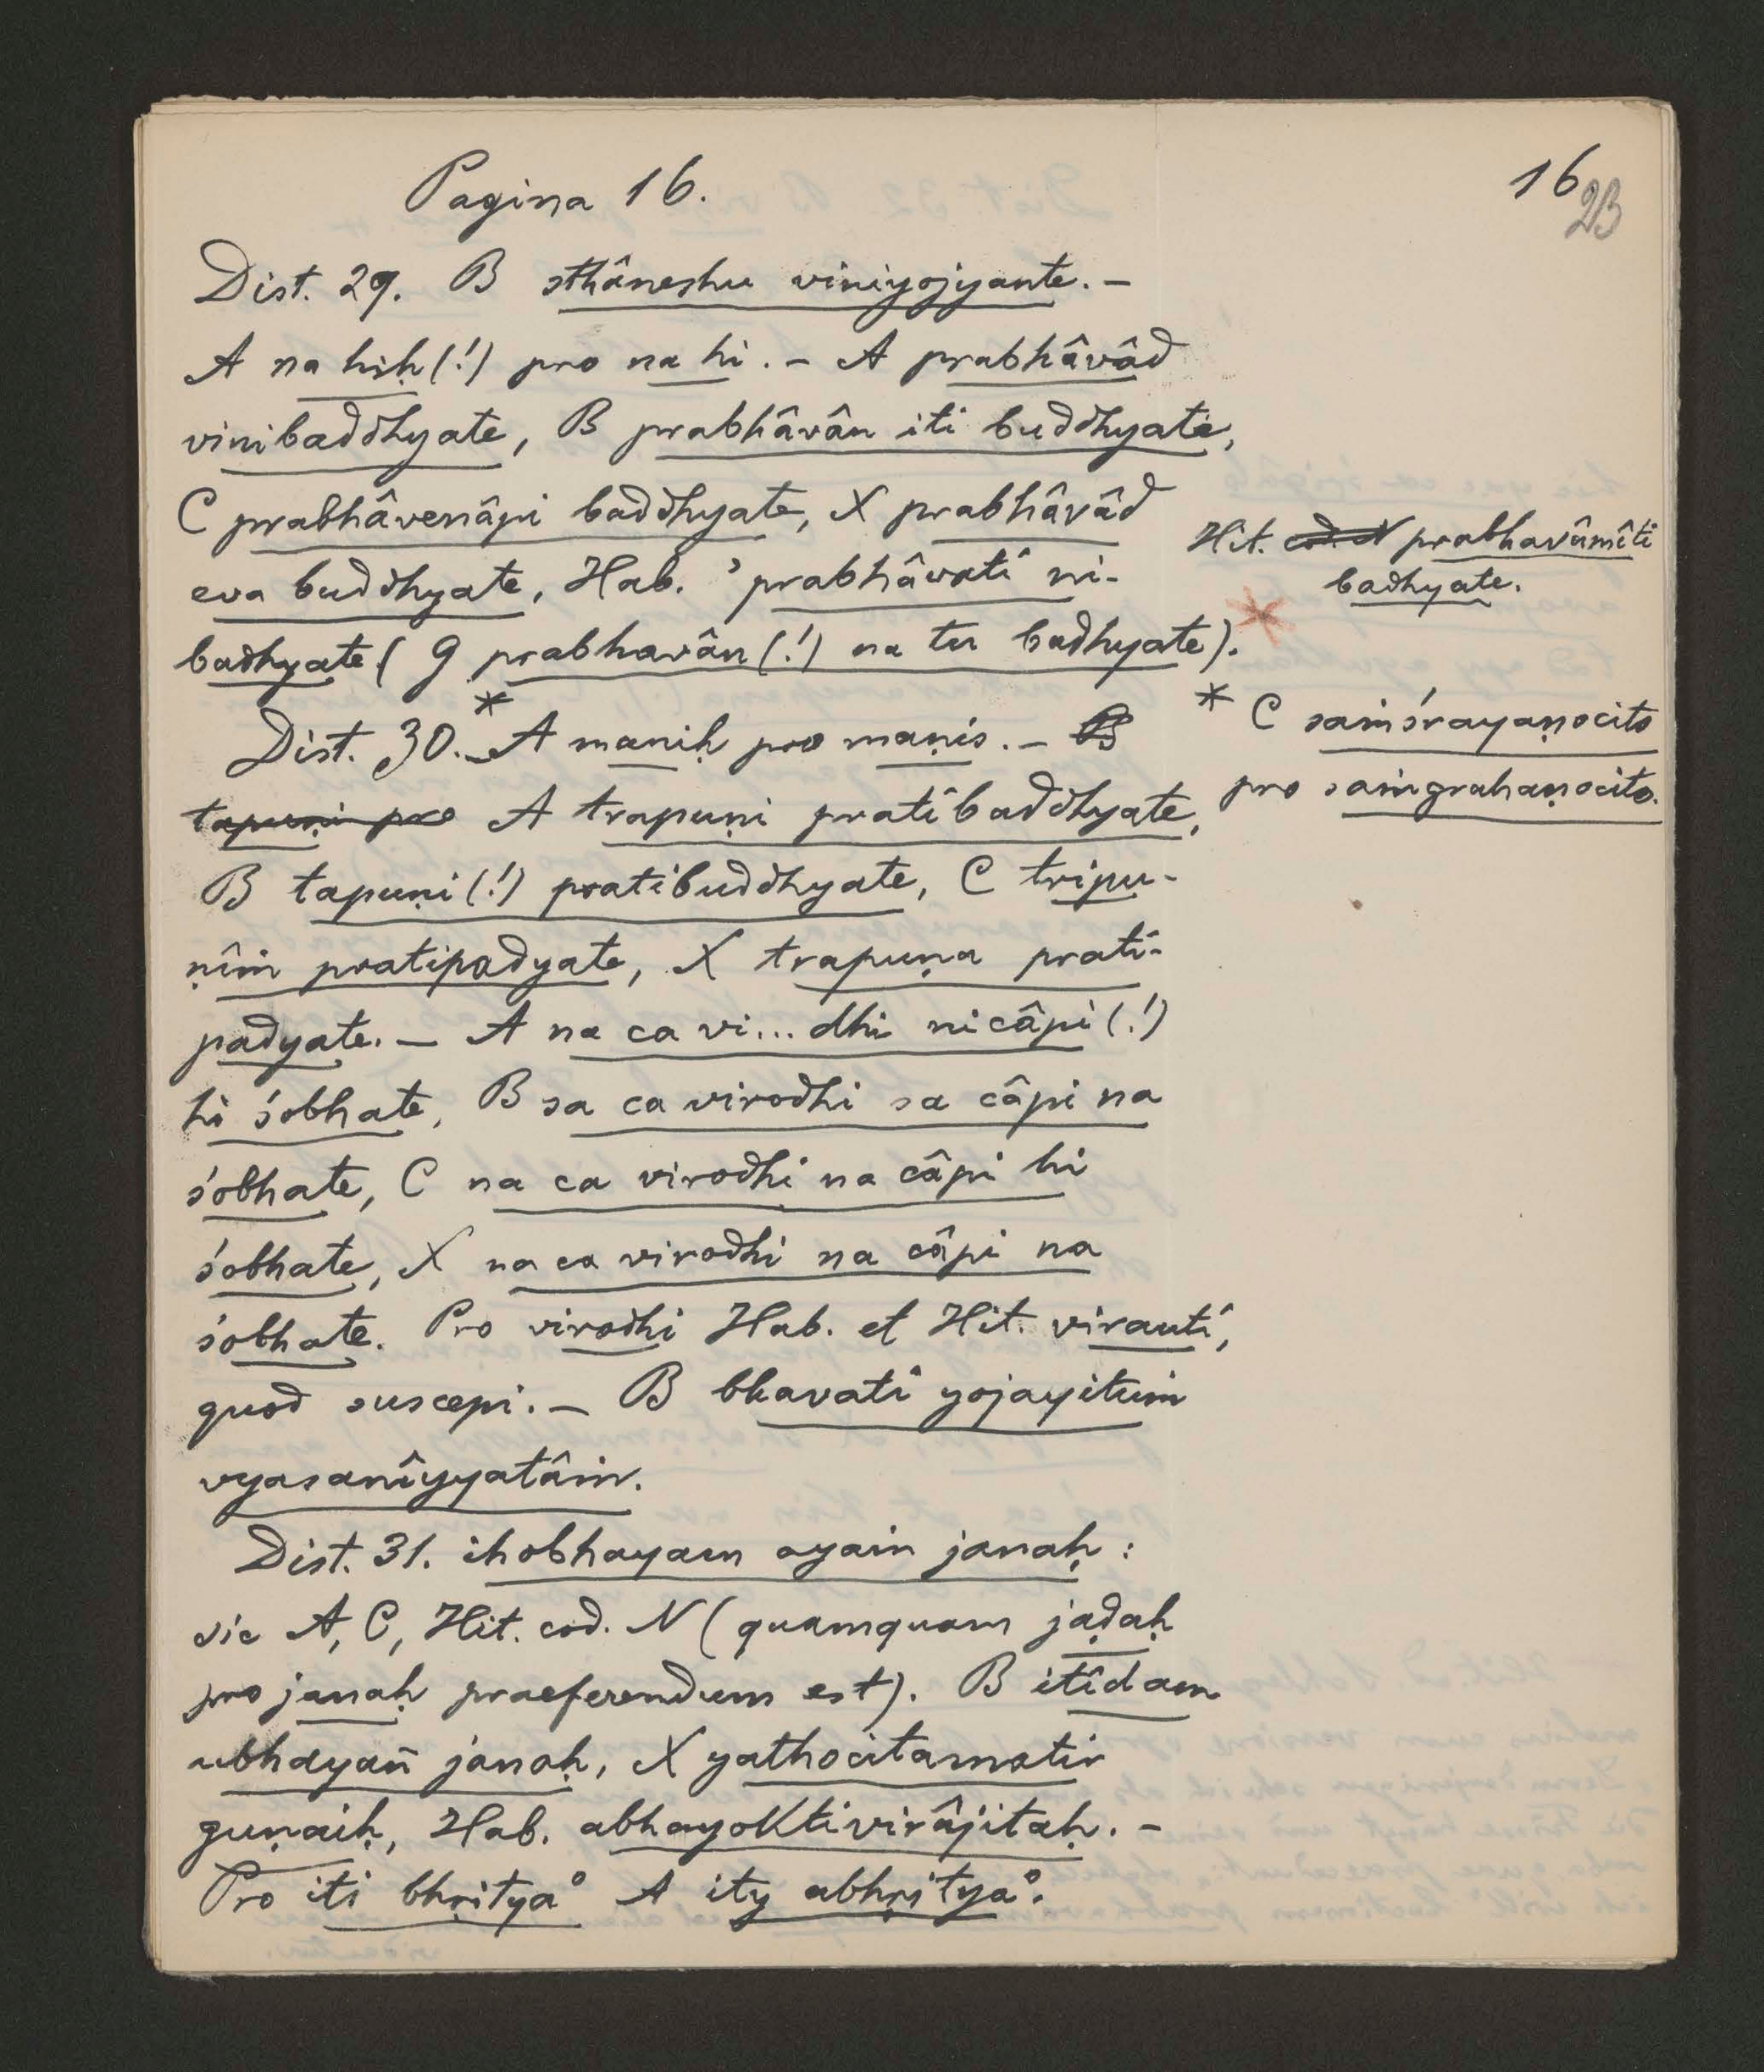 Pagina 16.
16
23
Dist. 29. B sthâneshu viniyojyante. –
A na hiḥ (!) pro na hi. – A prabhâvâd
vinibaddhyate, B prabhâvân iti buddhyate,
C prabhâvenâpi baddhyate, X prabhâvâd
eva buddhyate, Hab. ’prabhâvatî ni-
badhyate ( g prabhavân (!) na tu badhyate).
Hit. cod. N prabhavâmîti
badhyate.
Dist. 30.* – A maniḥ pro maṇis. – B
tapuṇi pro A trapuṇi pratibaddhyate,
B tapuṇi (!) pratibuddhyate, C tripu-
ṇîṁ pratipadyate, X trapuṇa prati-
padyate. – A na ca vi... dhi nicâpi (!)
hi śobhate, B sa ca virodhi sa câpi na
śobhate, C na ca virodhi na câpi hi
śobhate, X na ca virodhi na câpi na
śobhate. Pro virodhi Hab. et Hit. virauti,
quod suscepi. – B bhavati yojayituṁ
vyasanîyyatâṁ.
* C saṁśrayaṇocito
pro saṁgrahaṇocito.
Dist. 31. ihobhayam ayaṁ janaḥ :
sic A, C, Hit. cod. N (quamquam jaḍaḥ
pro janaḥ praeferendum est). B itîdam
ubhayañ janaḥ, X yathocitamatir
guṇaiḥ, Hab. abhayoktivirâjitaḥ. –
Pro iti bhṛitya° A ity abhṛitya°.